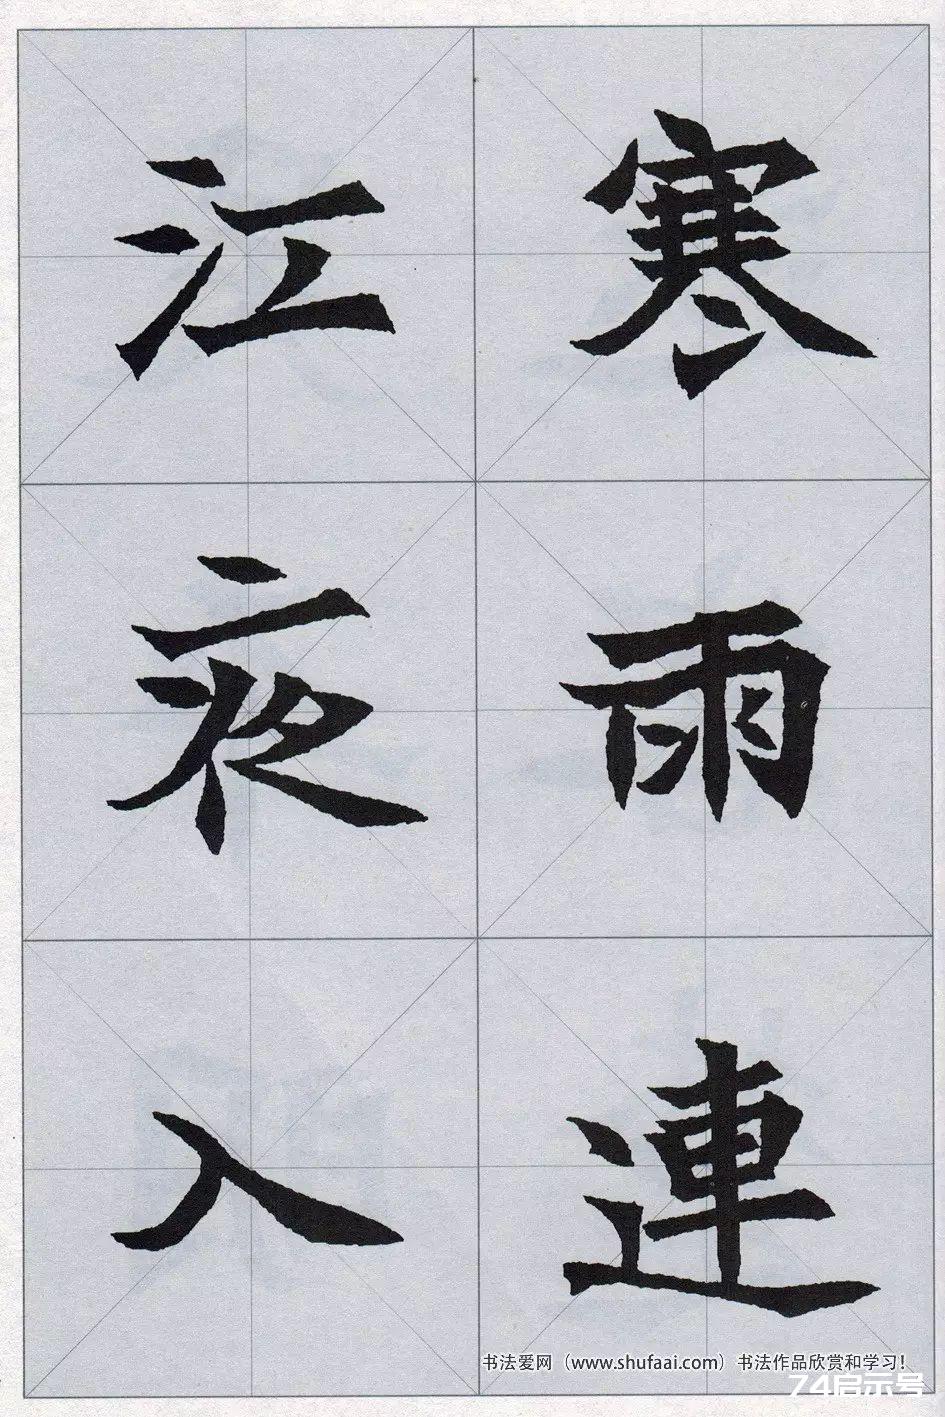 寒雨連
江夜入
书法爱网（www.shufaai.com）书法作品欣赏和学习！
74启示号